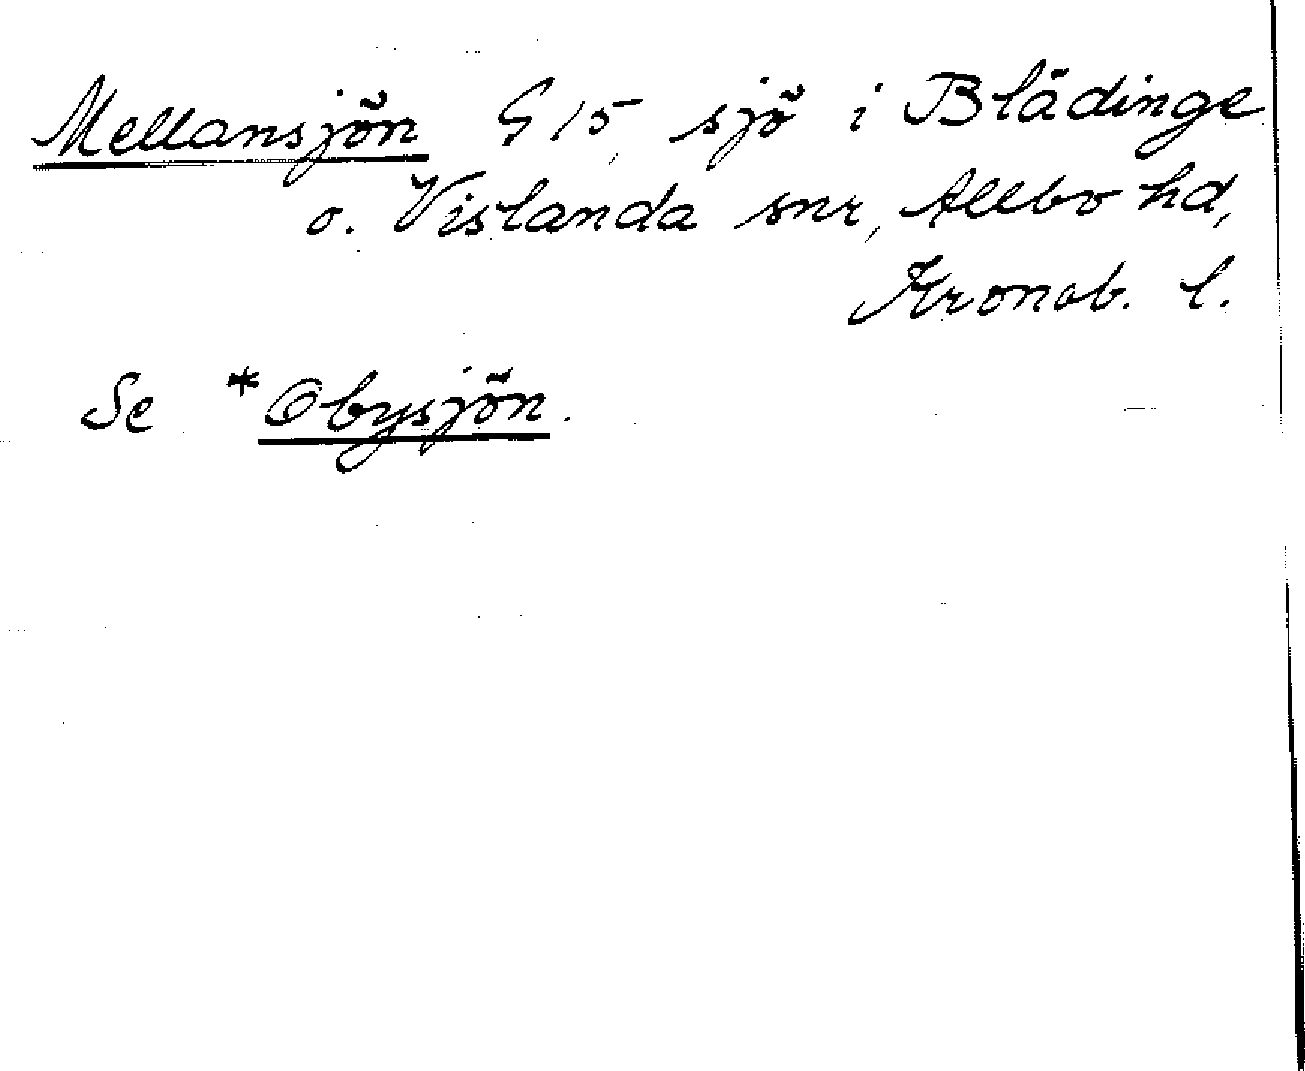 Mellansjön G 15, sjö i Blädinge
o. Vislanda snr, Allbo hd,
Kronob. l.
Se *Obysjön.